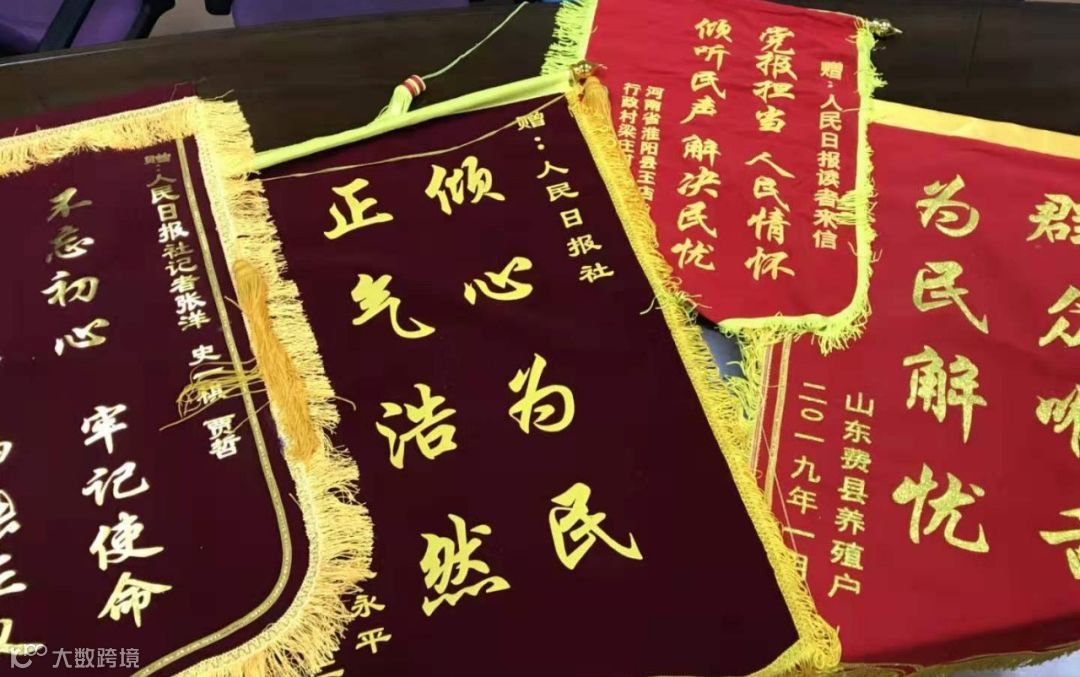 赠:人民日报社记者张洋 史一棋 贾哲
不忘初心 牢记使命
赠:人民日报社
倾心为民
正气浩然
永平
赠:人民日报读者来信
党报担当 人民情怀
倾听民声 解决民忧
河南省淮阳县王店
行政村梁庄村
群众
为民解忧
山东费县养殖户
二〇一九年一月
大数跨境